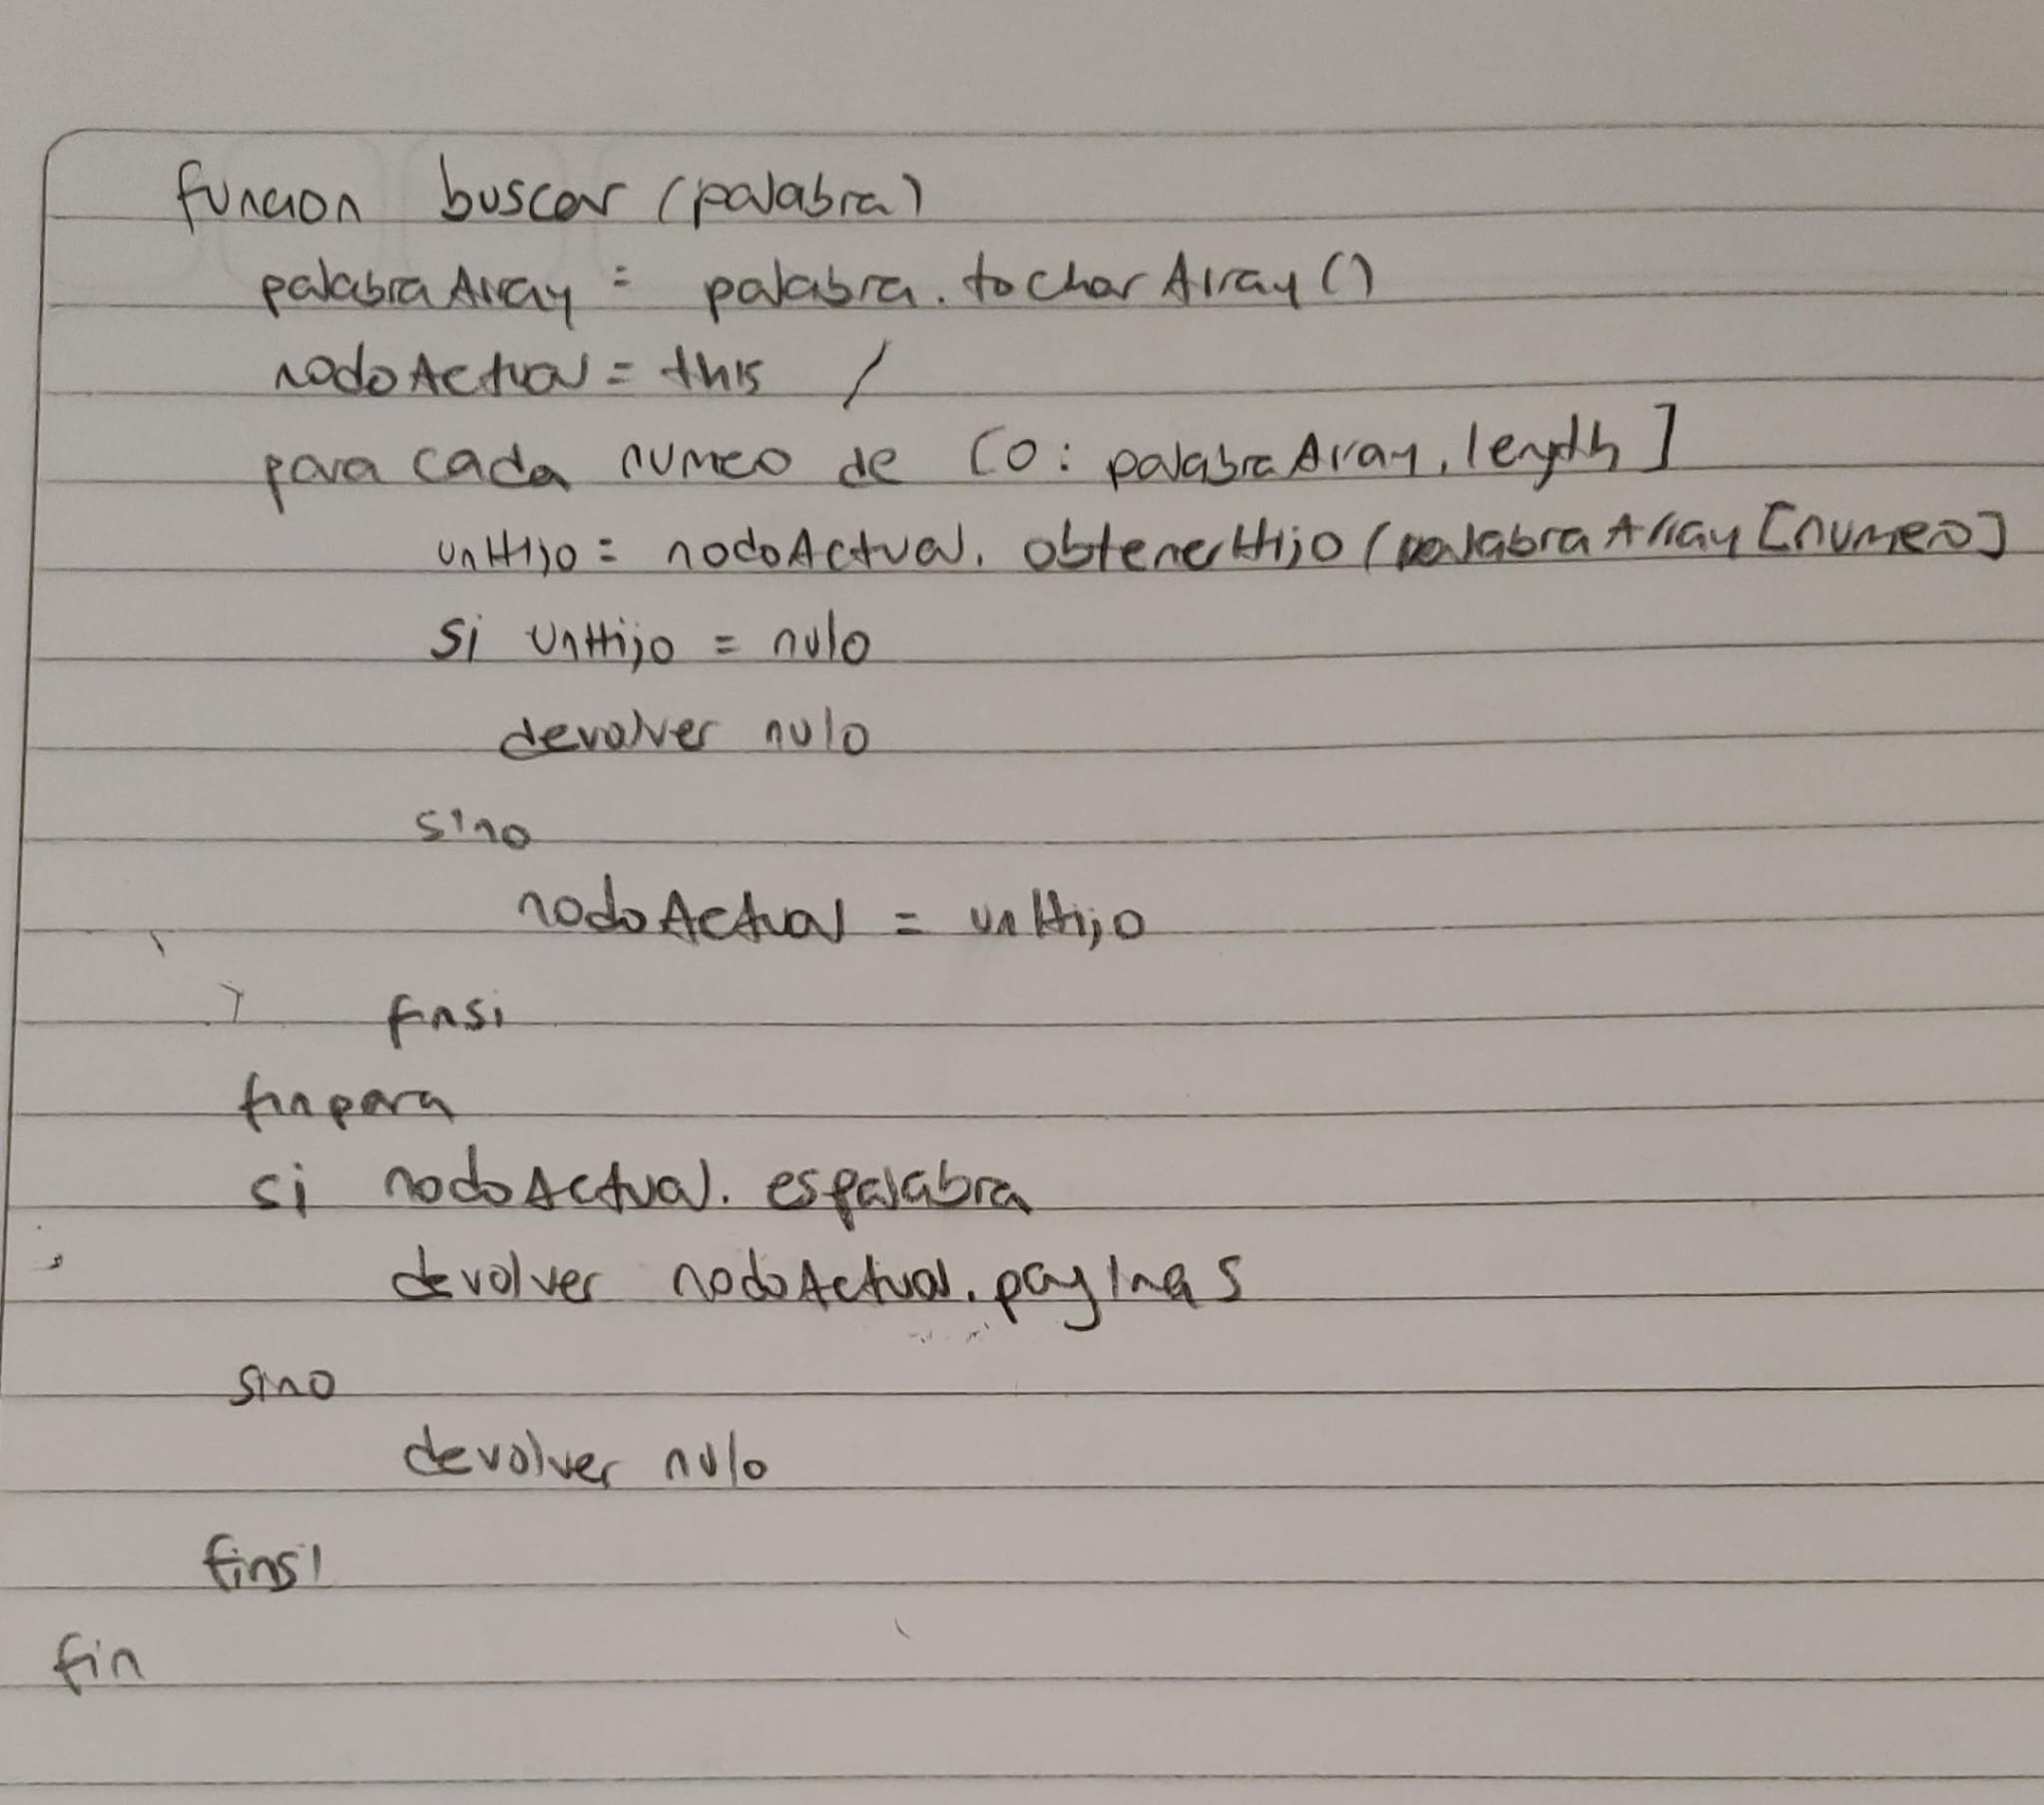 funcion buscar (palabra)
palabraArray = palabra.toCharArray()
nodoActual = this /
para cada numeo de [0: palabraArray.length]
unHijo = nodoActual.obtenerHijo(palabraArray[numero]
si unHijo = nulo
devolver nulo
sino
nodoActual = unHijo
finsi
finpara
si nodoActual.espalabra
devolver nodoActual.paginas
sino
devolver nulo
finsi
fin